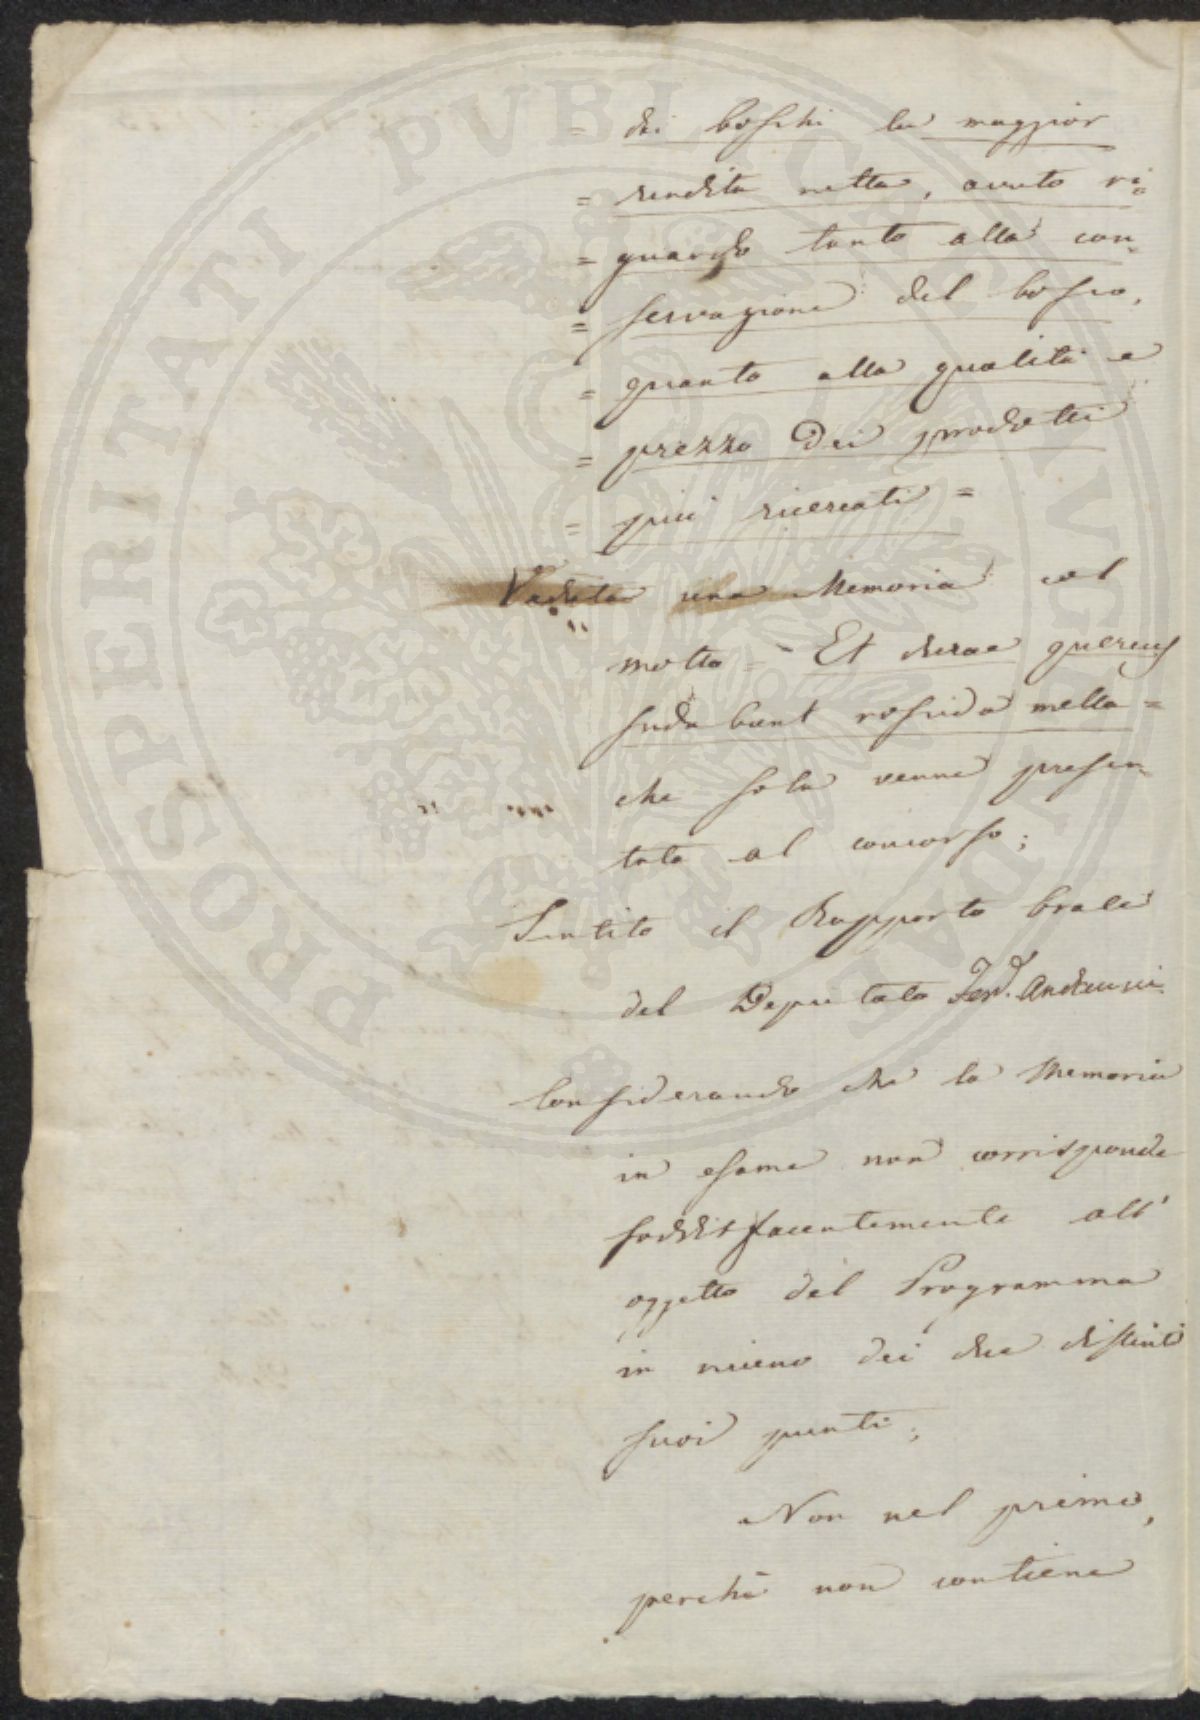 = dei boschi la maggior
= rendita netta, avuto ri=
= guardo tanto alla con=
= servazione del bosco,
= quanto alla qualità e
= prezzo dei prodotti
= più ricercati =
Veduta una Memoria col
motto = Et durae quercus
sudabunt roscida mella =
che sola venne presen=
tata al concorso;
Sentito il Rapporto
del Deputato Ferd. Andreucci
Considerando che la Memoria
in esame non corrisponde
soddisfacentemente all'
oggetto del Programma
in niuno dei due distinti
suoi punti;
Non nel primo,
perchè non contiene
PROSPERITATI PVBLICAE AVGENDAE